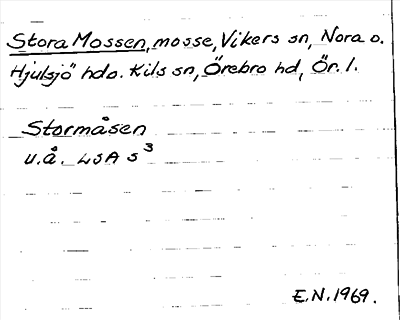 Stora Mossen, mosse, Vikers sn, Nora o.
Hjulsjö hdo. Kils sn, Örebro hd, Ör. l.
Stormåsen
u.å. LSA s³
E.N. 1969.